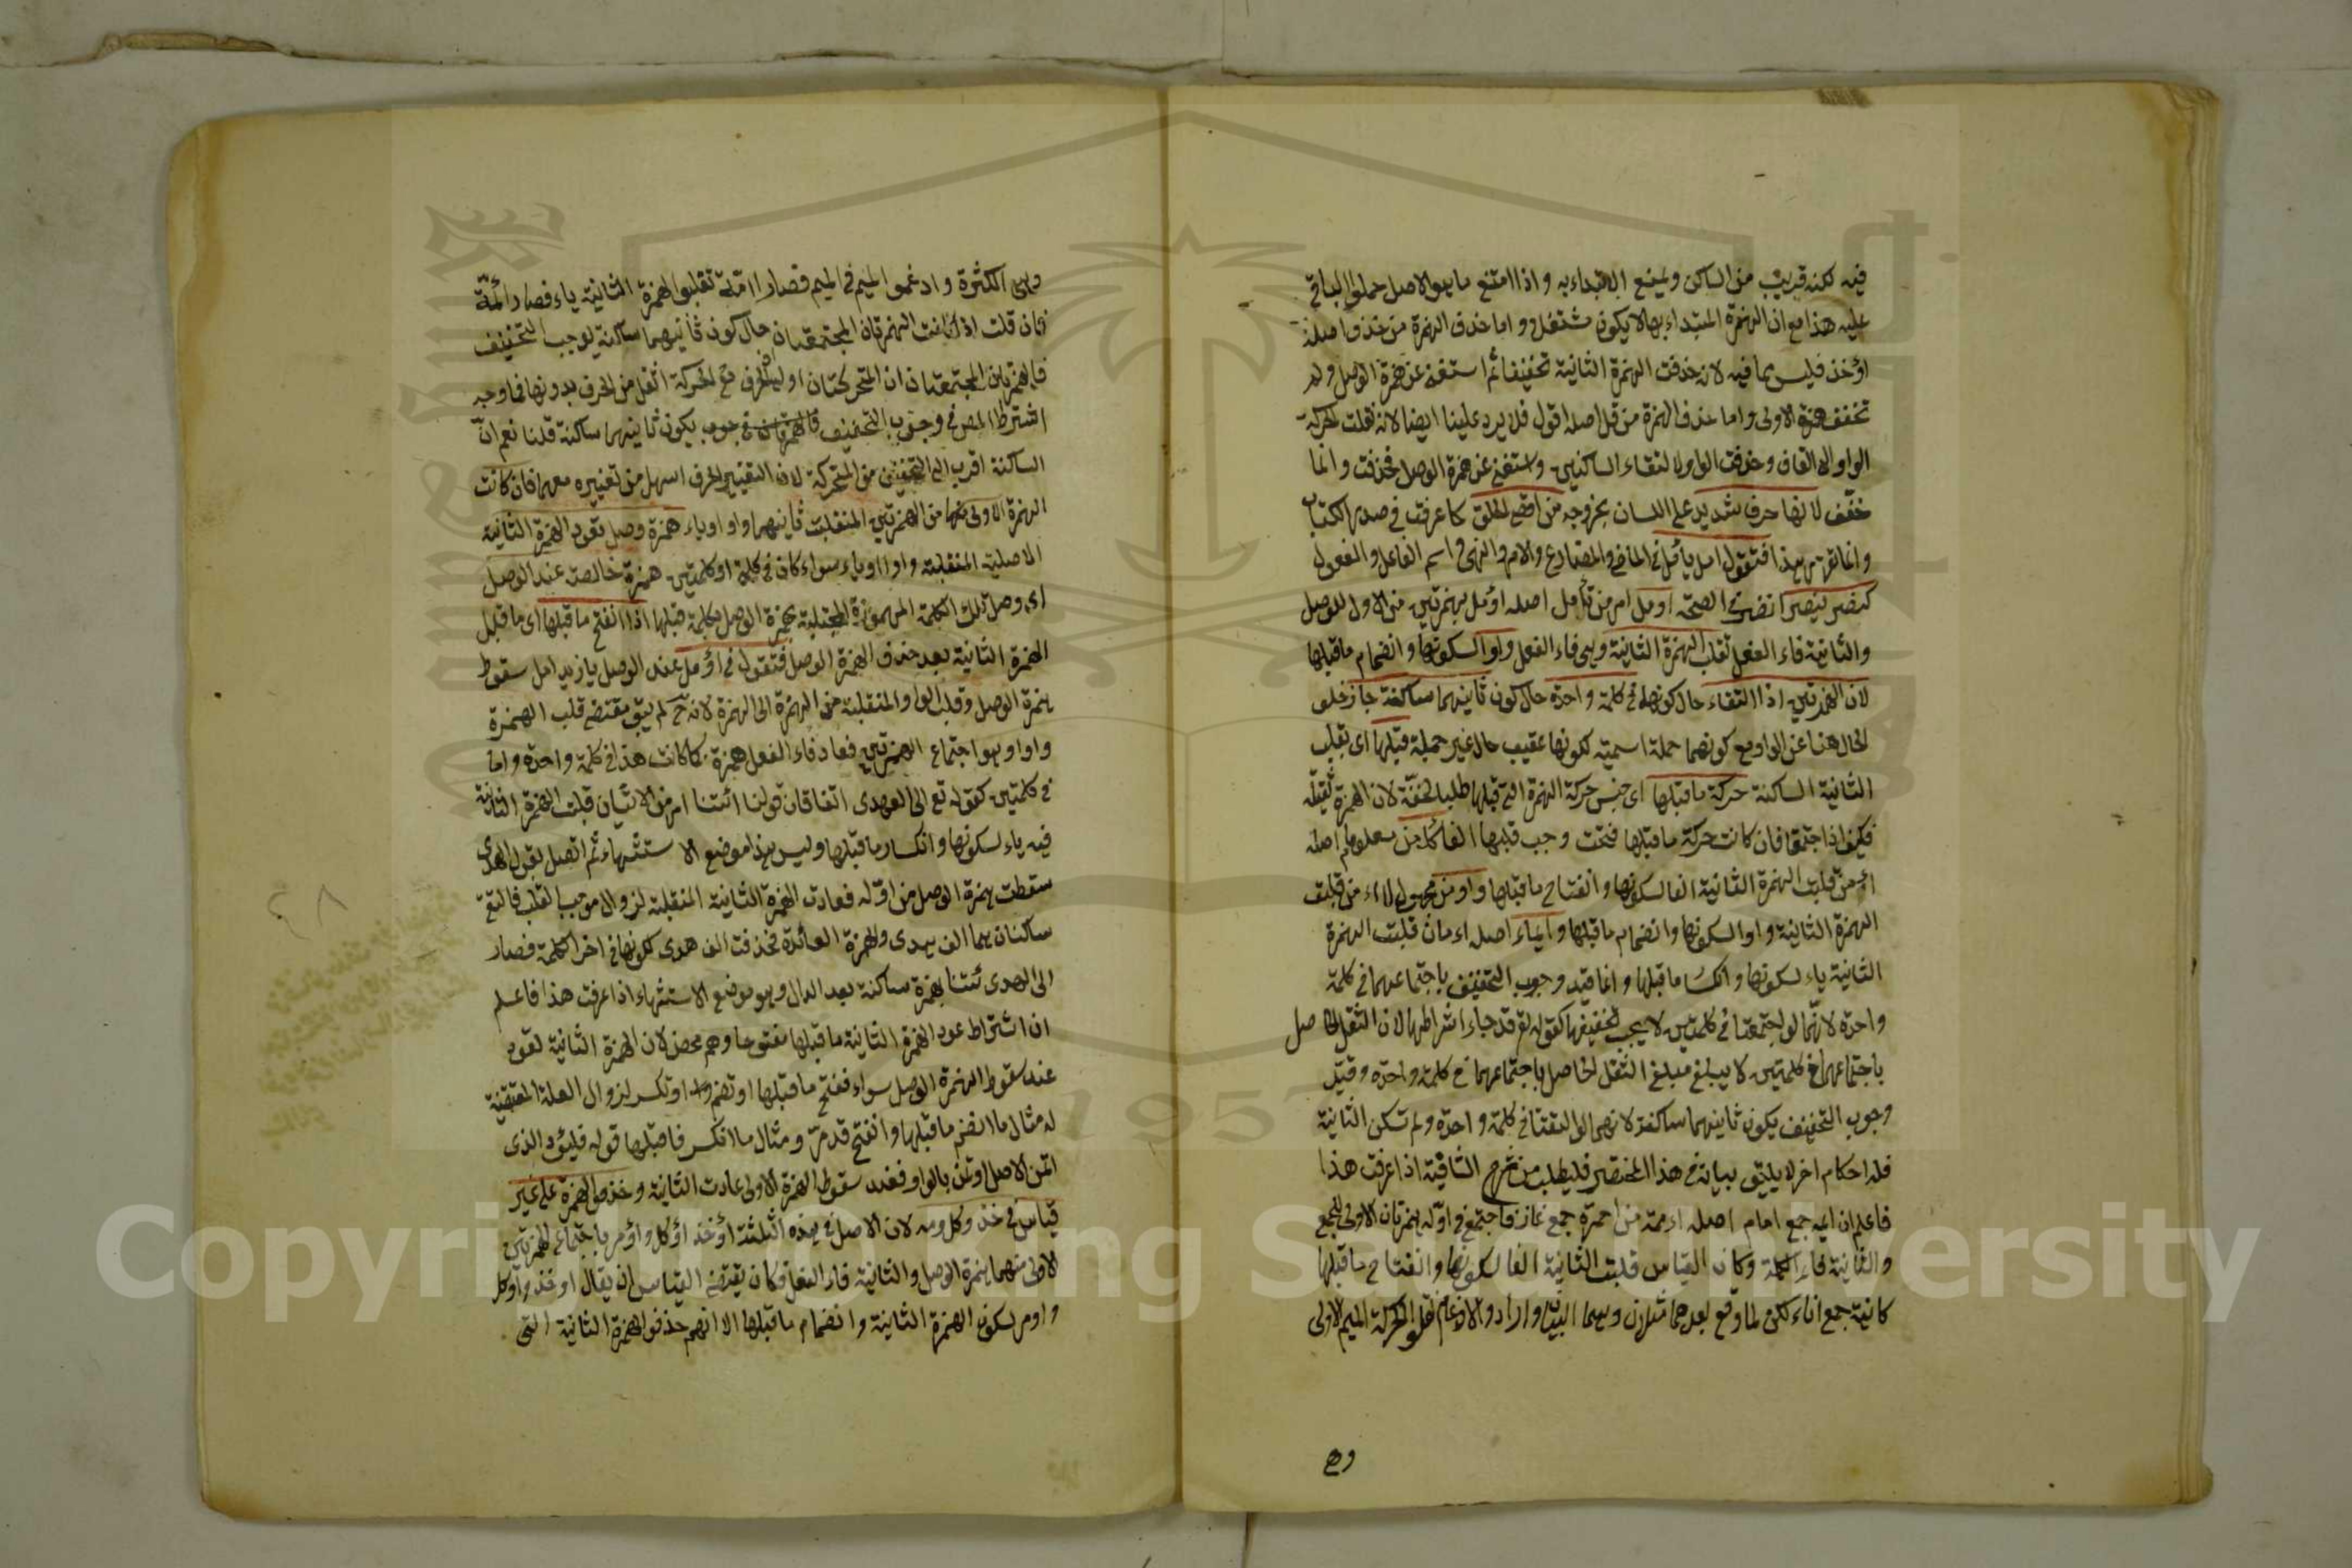 فيه لكنه قريب من الساكن ويمنع الابتداء به واذا امتنع ما هو الاصل حملوا الباقى
عليه هذا مع ان الهمزة المبتداء بها لا يكون مشتغل واما حذف الهمزة من خذ واصله
اؤخذ فليس مما فيه لانه حذفت الهمزة الثانية تخفيفا ثم استغنى عن همزة الوصل ولم
تخفف همزة الاولى واما حذف الهمزة من قل اصله اقول فلا يرد علينا ايضا لانه نقلت حركة
الواو الى القاف وحذفت الواو لالتقاء الساكنين واستغنى عن همزة الوصل فحذفت وانما
خفف لانها حرف شديد على اللسان بخروجه من اقصى الحلق كما عرفت فى صدر الكتاب
فتقول امل يأمل فى الماضى والمضارع والامر والنهى واسم الفاعل والمفعول
كنصر ينصر انصر فى الصحة اومل امر من تأمل اصله اؤمل بهمزتين من الاول للوصل
والثانية فاء الفعل تقلب الهمزة الثانية وهى فاء الفعل واوا لسكونها وانضمام ماقبلها
لان الهمزتين اذا التقتا حال كونهما فى كلمة واحدة حال كون ثانيهما ساكنة جاز خلو
الحال هنا عن الواو مع كونهما جملة اسمية لكونها عقيب حال غير جملة قبلها اى بقلب
الثانية الساكنة حركة ماقبلها اى جنس حركة الهمزة التى قبلها طلبا للخفة لان الهمزة ثقيلة
فكيف اذا اجتمعا فان كانت حركة ماقبلها فتحت وجب قلبها الفا كآمن معلوما اصله
اؤمن قلبت الهمزة الثانية الفا لسكونها وانفتاح ماقبلها واومن مجهولا من قلبت
الهمزة الثانية واوا لسكونها وانضمام ماقبلها وايماء اصله اءمان قلبت الهمزة
الثانية ياء لسكونها وانكسار ماقبلها وانما قيد وجوب التخفيف باجتماعهما فى كلمة
واحدة لانهما لو اجتمعتا فى كلمتين لا يجب تخفيفها كقوله تع قد جاء اشراطها لان الثقل الحاصل
باجتماعهما فى كلمتين لا يبلغ مبلغ الثقل الحاصل باجتماعهما فى كلمة واحدة وقيد
وجوب التخفيف بكون ثانيهما ساكنة لانهما لو التقتا فى كلمة واحدة ولم تكن الثانية
فله احكام اخر لا يليق بيانه فى هذا المختصر فليطلب من شرح الشافية اذا عرفت هذا
فاعلم ان ايمة جمع امام اصله اءممة من احمرة جمع فاجتمع فى اوله همزتان الاولى للجمع
والثانية فاء الكلمة وكان القياس قلبت الثانية الفا لسكونها وانفتاح ماقبلها
كانية جمع اناء لكن لما وقع بعدهما مثلان وهما الميمان وارادوا الادغام نقلوا حركة الميم الاولى
وهى
وهى الكثرة وادغموا الميم فى الميم فصار اامّة تقلبوا الهمزة الثانية ياء فصار ائمّة
فان قلت اذا كانت الهمزتان المجتمعتان حال كون ثانيهما ساكنة يوجب التخفيف
فالهمزتان المجتمعتان ان المتحركتان اولى لان الحرف مع الحركة اثقل من الحرف بدونها فما وجه
اشتراط المص فى وجوب التخفيف يكون ثانيهما ساكنة قلنا نعم ان
الساكنة اقرب الى التخفيف من المتحركة لان التغيير الحرف اسهل من تغييره معهما فان كانت
الهمزة الاولى منهما من الهمزتين المنقلبت ثانيهما واوا وياء همزة وصل تعود الهمزة الثانية
الاصلية المنقلبة واوا او ياء سواء كان فى كلمة او كلمتين همزة خالصة عند الوصل
اى وصل تلك الكلمة المهموزة المجتلبة بهمزة الوصل بكلمة قبلها اذا انفتح ماقبلها اى ماقبل
الهمزة الثانية بعد حذف الهمزة الوصل فتقول فى اؤمل عند الوصل يا زيد امل سقوط
همزة الوصل وقلبت الواو المنقلبة من الهمزة الى الهمزة لانه ح لم يبق مقتضى قلب الهمزة
واوا وهو اجتماع الهمزتين فعاد فاء الفعل همزة كما كانت هذا فى كلمة واحدة واما
فى كلمتين كقوله تع الى الهدى ائتنا فان قولنا ائتنا امر من الاتيان قلبت الهمزة الثانية
فيه ياء لسكونها وانكسار ماقبلها وليس هذا موضع الاستشهاد ثم اتصل بقوله الهدى
سقطت همزة الوصل من اوله فعادت الهمزة الثانية المنقلبة لزوال موجب القلب فالتقى
ساكنان هما الف هدى والهمزة العائدة فحذفت الف هدى لكونها فى اخر الكلمة فصار
الى الهدى ئتنا بهمزة ساكنة بعد الدال وهو موضع الاستشهاد اذا عرفت هذا فاعلم
ان اشتراط عود الهمزة الثانية ماقبلها مفتوحا وهم محض لان الهمزة الثانية تعود
عند سقوط الهمزة الوصل سواء فتح ماقبلها او تضم او تكسر لزوال العلة المقتضية
له مثال ما انضم ماقبلها وانفتح قد مر ومثال ما انكسر ماقبلها قوله فليؤد الذى
اتمن الاصل اوتمن بالواو فعند سقوط الهمزة الاولى عادت الثانية وحذف الهمزة على غير
قياس فى خذ وكل ومر لان الاصل فى هذه الثلثة اؤخذ اؤكل واؤمر باجتماع الهمزتين
الاولى منهما همزة الوصل والثانية فاء الفعل فكان يقتضى القياس ان يقال اوخذ واوكل
واومر لسكون الهمزة الثانية وانضمام ماقبلها الا انهم حذفوا الهمزة الثانية التى
Copyright © King Saud University
1957